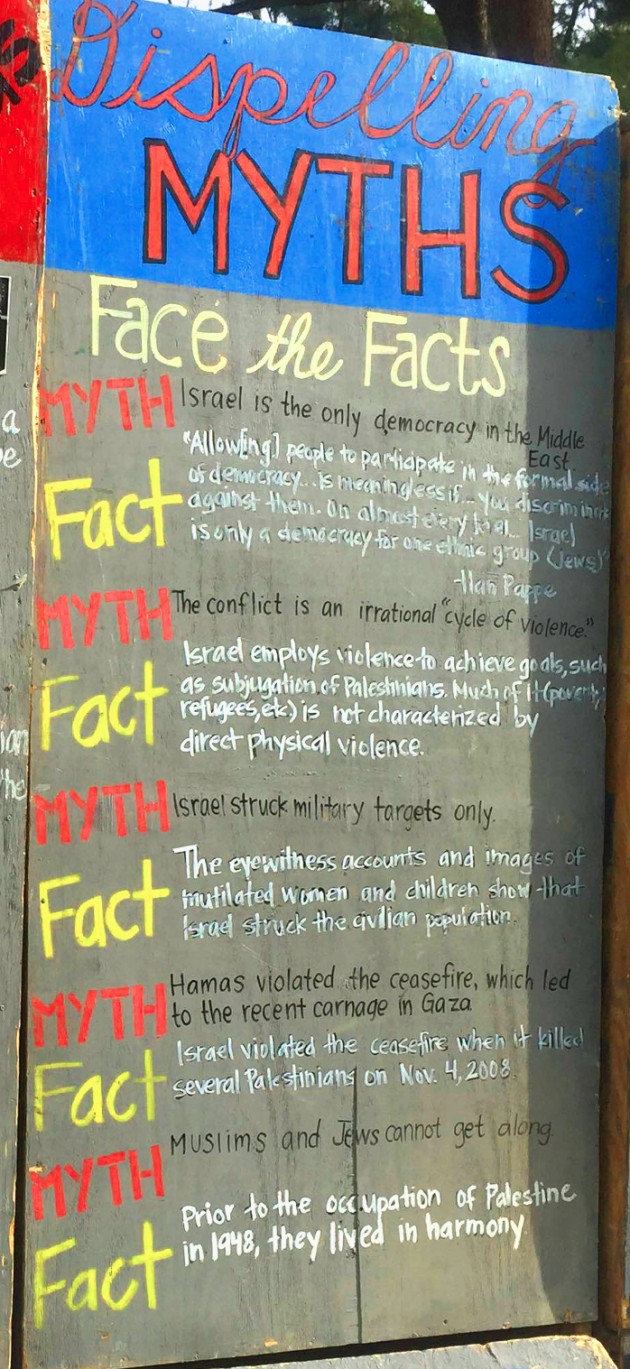 Dispelling
MYTHS
Face the Facts
MYTH Israel is the only democracy in the Middle
East.
Fact "Allow[ing] people to participate in the formal side
of democracy... is meaningless if... you discriminate
against them. On almost every level... Israel
is only a democracy for one ethnic group (Jews)"
-Ilan Pappe
MYTH The conflict is an irrational "cycle of violence."
Fact Israel employs violence to achieve goals, such
as subjugation of Palestinians. Much of it (poverty,
refugees, etc) is not characterized by
direct physical violence.
MYTH Israel struck military targets only.
Fact The eyewitness accounts and images of
mutilated women and children show that
Israel struck the civilian population.
MYTH Hamas violated the ceasefire, which led
to the recent carnage in Gaza
Fact Israel violated the ceasefire when it killed
several Palestinians on Nov. 4, 2008.
MYTH Muslims and Jews cannot get along.
Fact Prior to the occupation of Palestine
in 1948, they lived in harmony